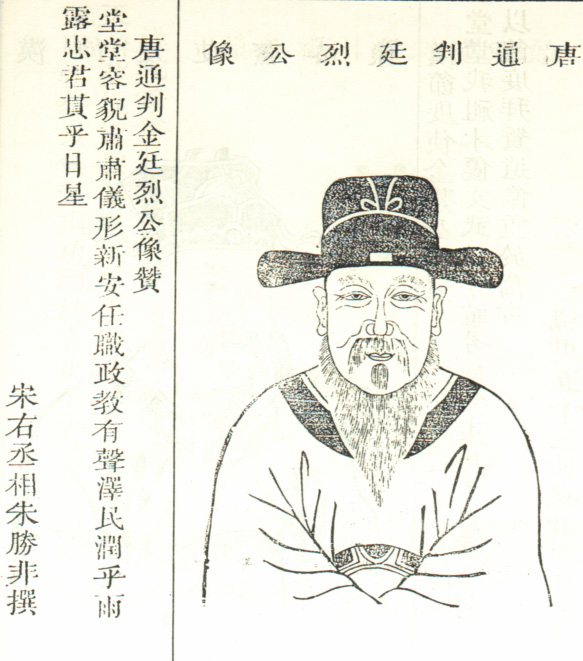 唐通判廷烈公像
唐通判金廷烈公像贊
堂堂容貌肅肅儀形新安任職政教有聲澤民潤乎雨
露忠君貫乎日星
宋右丞相朱勝非撰